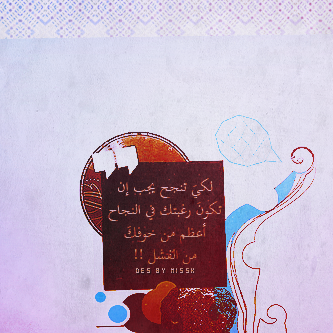 لكي تنجح يجب إن
تكون رغبتك في النجاح
أعظم من خوفك
من الفشل !!
DES BY MISSK